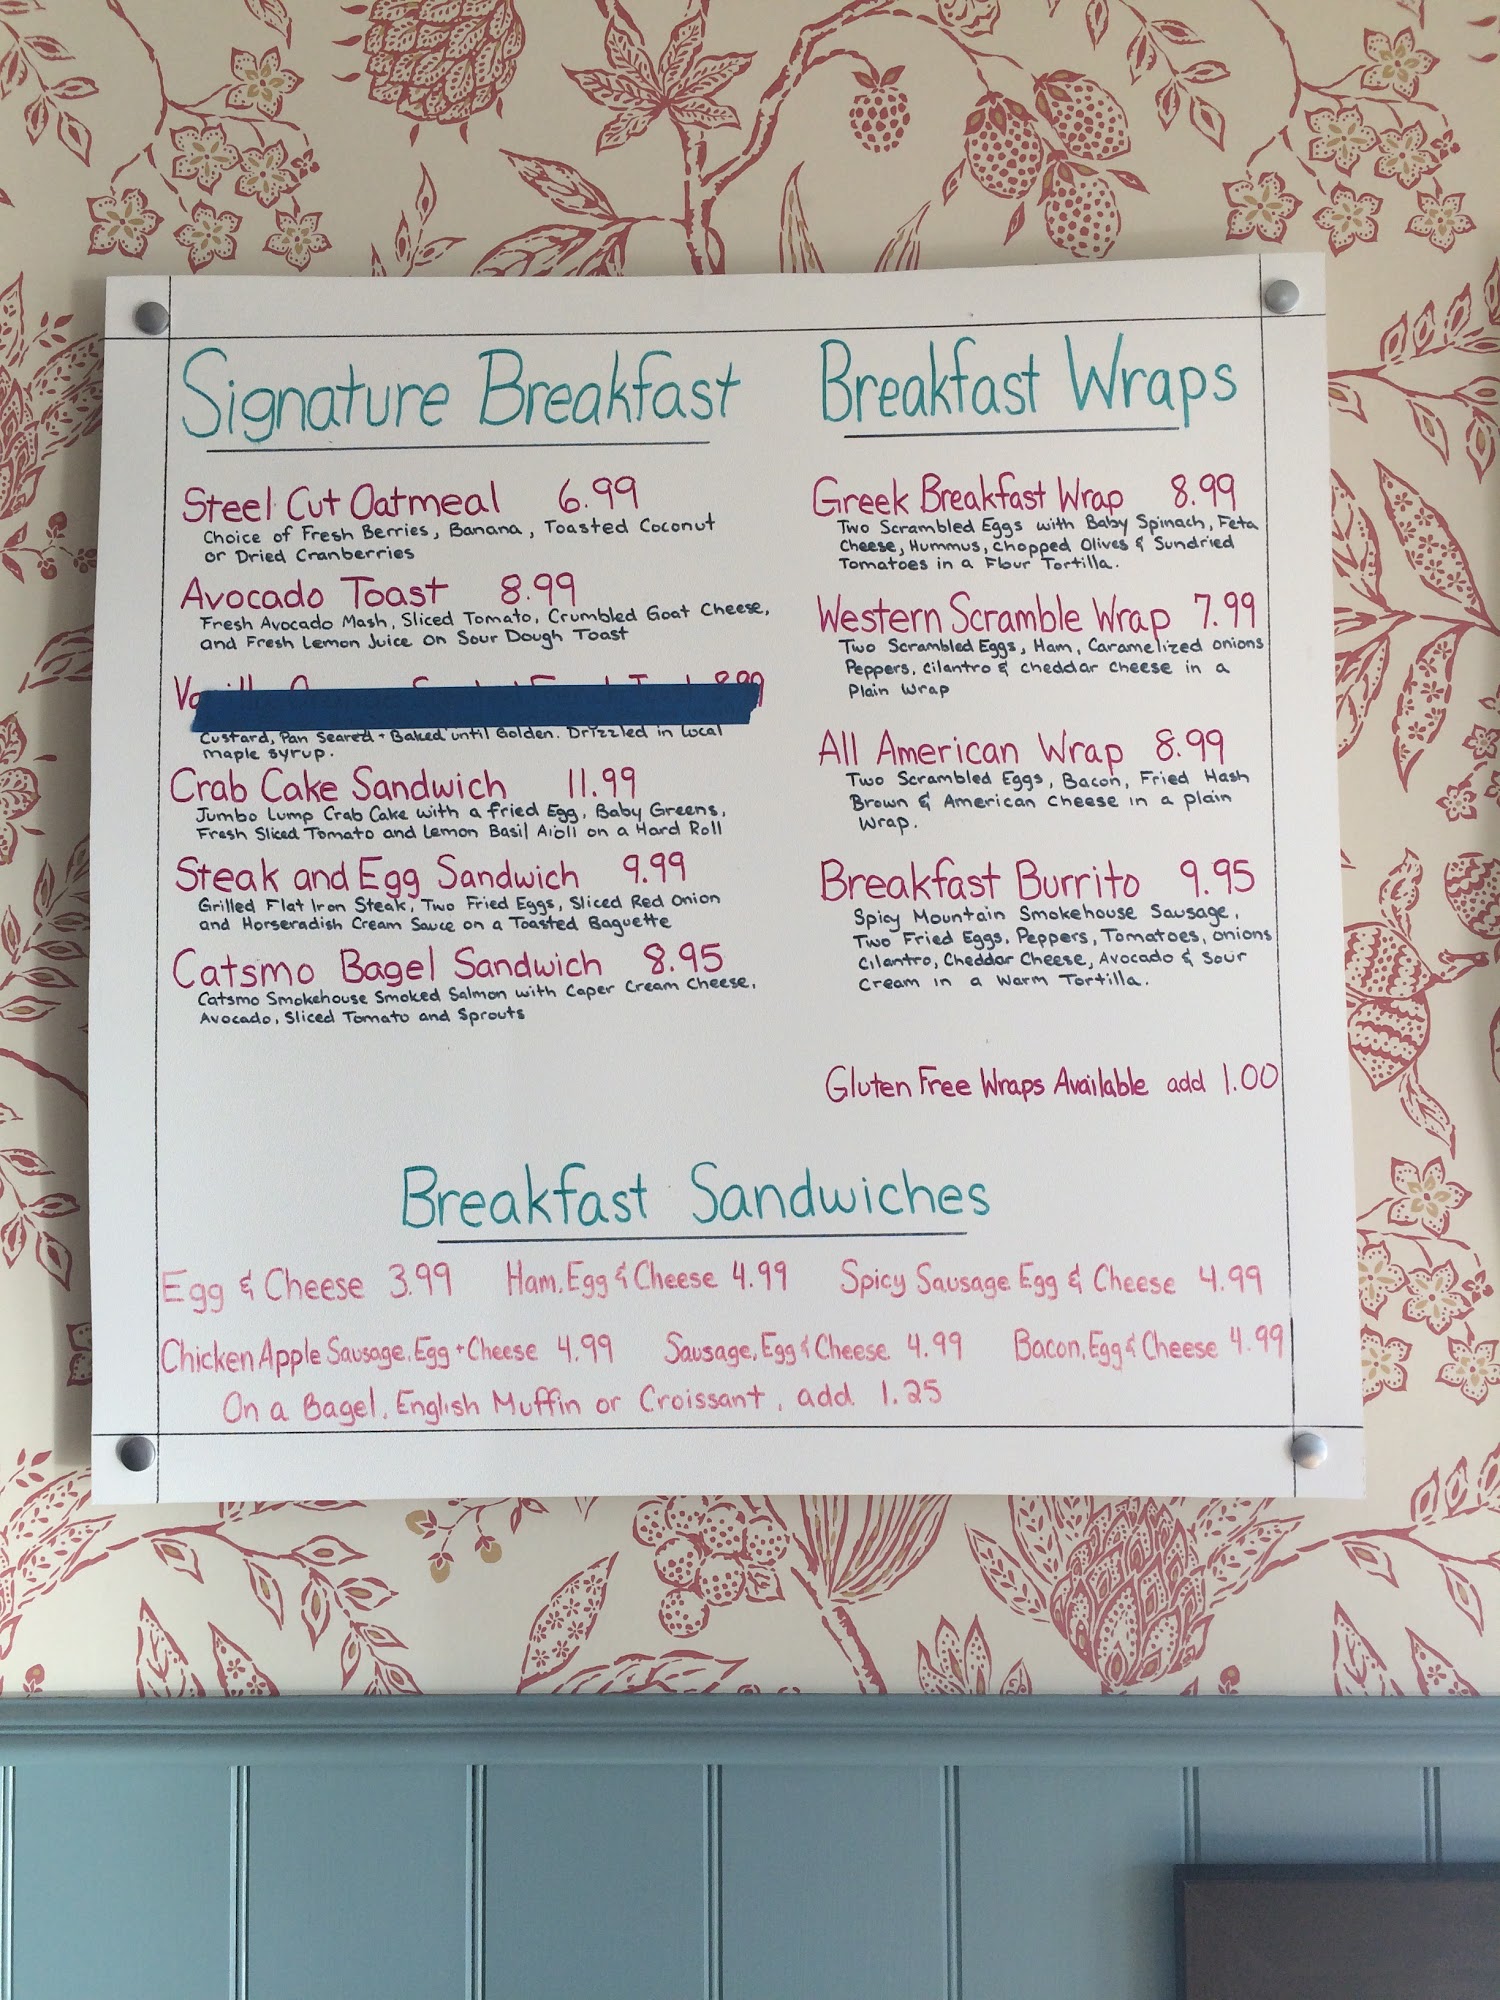 Signature Breakfast
Steel Cut Oatmeal 6.99
Choice of Fresh Berries, Banana, Toasted Coconut
or Dried Cranberries
Avocado Toast 8.99
Fresh Avocado Mash, Sliced Tomato, Crumbled Goat Cheese,
and Fresh Lemon Juice on Sour Dough Toast
8.99
Custard, Pan Seared + Baked until Golden. Drizzled in Local
maple syrup.
Crab Cake Sandwich 11.99
Jumbo Lump Crab Cake with a fried Egg, Baby Greens,
Fresh Sliced Tomato and Lemon Basil Aioli on a Hard Roll
Steak and Egg Sandwich 9.99
Grilled Flat Iron Steak, Two Fried Eggs, Sliced Red Onion
and Horseradish Cream Sauce on a Toasted Baguette
Catsmo Bagel Sandwich 8.95
Catsmo Smokehouse Smoked Salmon with Caper Cream Cheese,
Avocado, Sliced Tomato and Sprouts
Breakfast Wraps
Greek Breakfast Wrap 8.99
Two Scrambled Eggs with Baby Spinach, Feta
Cheese, Hummus, Chopped Olives & Sundried
Tomatoes in a Flour Tortilla.
Western Scramble Wrap 7.99
Two Scrambled Eggs, Ham, Caramelized onions
Peppers, cilantro & cheddar cheese in a
Plain Wrap
All American Wrap 8.99
Two Scrambled Eggs, Bacon, Fried Hash
Brown & American Cheese in a plain
Wrap.
Breakfast Burrito 9.95
Spicy Mountain Smokehouse Sausage,
Two Fried Eggs, Peppers, Tomatoes, onions
Cilantro, Cheddar Cheese, Avocado & Sour
Cream in a Warm Tortilla.
Gluten Free Wraps Available add 1.00
Breakfast Sandwiches
Egg & Cheese 3.99 Ham, Egg & Cheese 4.99 Spicy Sausage Egg & Cheese 4.99
Chicken Apple Sausage, Egg + Cheese 4.99 Sausage, Egg & Cheese 4.99 Bacon, Egg & Cheese 4.99
On a Bagel, English Muffin or Croissant, add 1.25